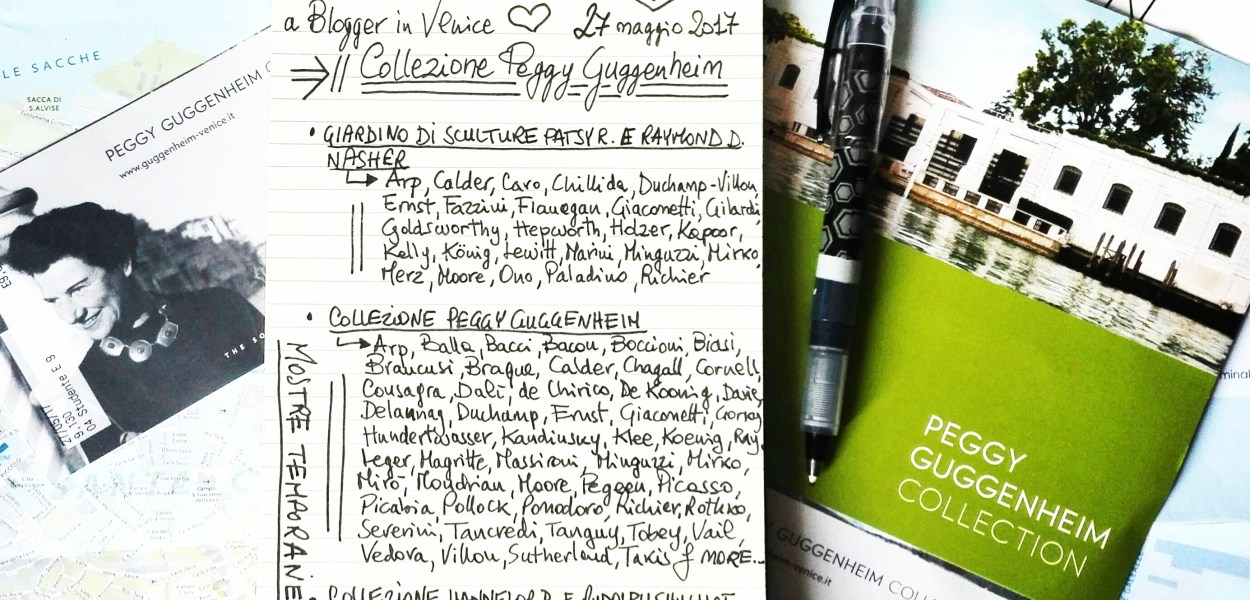 LE SACCHE
SACCA DI
S.ALVISE
PEGGY GUGGENHEIM
www.guggenheim-venice.it
THE SO
04 Studente E 9
9.130
27/05/17
a Blogger in Venice ♡ 27 maggio 2017
⇒ // Collezione Peggy Guggenheim
• GIARDINO DI SCULTURE PATSY R. E RAYMOND D.
NASHER
↳ Arp, Calder, Caro, Chillida, Duchamp-Villon,
Ernst, Fazzini, Flanegan, Giacometti, Gilardi
Goldsworthy, Hepworth, Holzer, Kapoor,
Kelly, König, Lewitt, Marini, Minguzzi, Mirko,
Merz, Moore, Ono, Paladino, Richier
• COLLEZIONE PEGGY GUGGENHEIM
↳ Arp, Balla, Bacci, Bacon, Boccioni, Biasi,
Brancusi, Braque, Calder, Chagall, Cornell
Consagra, Dalì, de Chirico, De Kooning, Davie
Delaunay, Duchamp, Ernst, Giacometti, Gorky
Hundertwasser, Kandinsky, Klee, Koenig, Ray,
Leger, Magritte, Massironi, Minguzzi, Mirko,
Mirò, Mondrian, Moore, Pegeen, Picasso,
Picabia, Pollock, Pomodoro, Richier, Rothko,
Severini, Tancredi, Tanguy, Tobey, Vail,
Vedova, Villon, Sutherland, Takis & MORE...
MOSTRE TEMPORANEE
• COLLEZIONE HANNELORE B. E RUDOLPH SCHULHOF
PEGGY
GUGGENHEIM
COLLECTION
GUGGENHEIM COLL